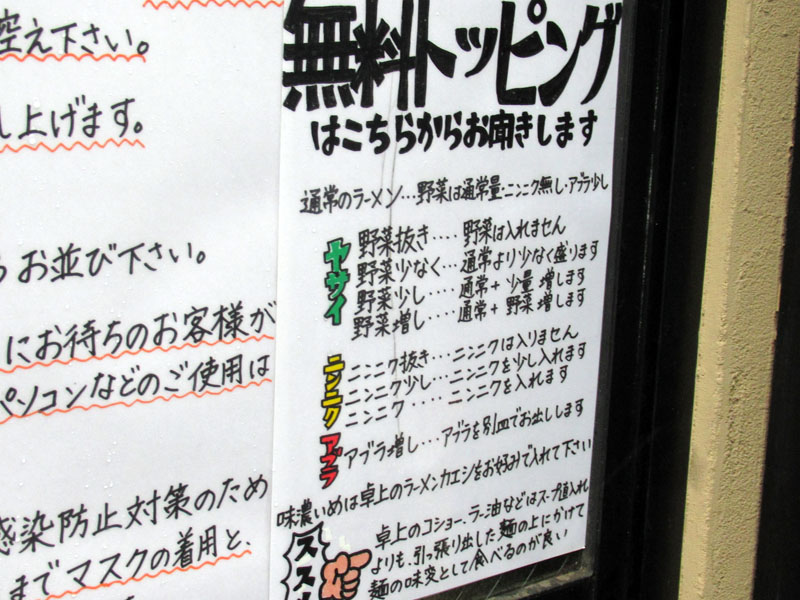 控え下さい。
し上げます。
お並び下さい。
にお待ちのお客様が
パソコンなどのご使用は
感染防止対策のため
までマスクの着用と、
無料トッピング
はこちらからお聞きします
通常のラーメン…野菜は通常量・ニンニク無し・アブラ少し
ヤサイ
野菜抜き‥‥野菜は入れません
野菜少なく…通常より少なく盛ります
野菜少し‥‥通常+少量増します
野菜増し‥‥通常+野菜増します
ニンニク
ニンニク抜き…ニンニクは入りません
ニンニク少し…ニンニクを少し入れます
ニンニク‥‥ニンニクを入れます
アブラ
アブラ増し…アブラを別皿でお出しします
味濃いめは卓上のラーメンカエシをお好みで入れて下さい
卓上のコショー、ラー油などはスープ直入れ
よりも、引っ張り出した麺の上にかけて
麺の味変として食べるのが良い